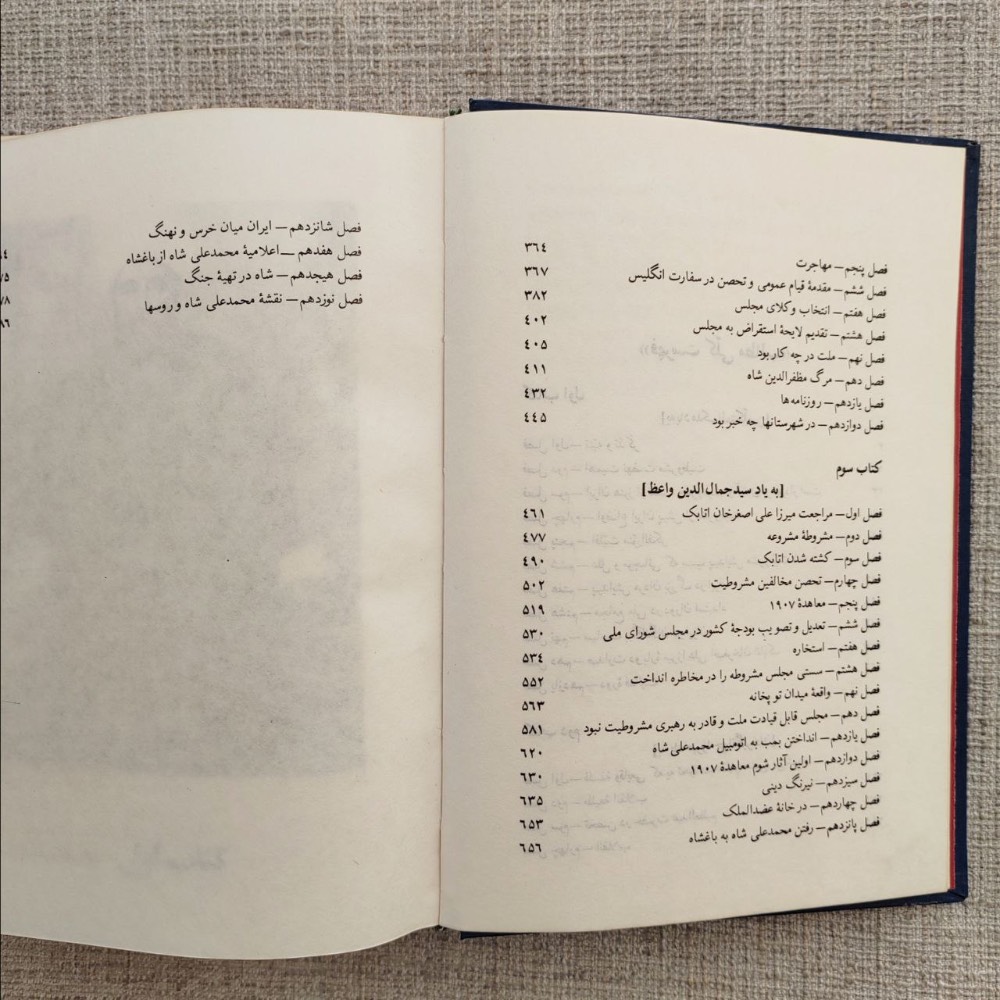 فصل پنجم — مهاجرت ۳۶۴
فصل ششم — مقدمهٔ قیام عمومی و تحصن در سفارت انگلیس ۳۶۷
فصل هفتم — انتخاب وکلای مجلس ۳۸۲
فصل هشتم — تقدیم لایحهٔ استقراض به مجلس ۴۰۲
فصل نهم — ملت در چه کار بود ۴۰۵
فصل دهم — مرگ مظفرالدین شاه ۴۱۱
فصل یازدهم — روزنامه‌ها ۴۳۲
فصل دوازدهم — در شهرستانها چه خبر بود ۴۴۵
کتاب سوم
[به یاد سید جمال الدین واعظ]
فصل اول — مراجعت میرزا علی اصغرخان اتابک ۴۶۱
فصل دوم — مشروطهٔ مشروعه ۴۷۷
فصل سوم — کشته شدن اتابک ۴۹۰
فصل چهارم — تحصن مخالفین مشروطیت ۵۰۲
فصل پنجم — معاهدهٔ ۱۹۰۷ ۵۱۹
فصل ششم — تعدیل و تصویب بودجهٔ کشور در مجلس شورای ملی ۵۳۰
فصل هفتم — استخاره ۵۳۴
فصل هشتم — سستی مجلس مشروطه را در مخاطره انداخت ۵۵۲
فصل نهم — واقعهٔ میدان توپخانه ۵۶۳
فصل دهم — مجلس قابل قیادت ملت و قادر به رهبری مشروطیت نبود ۵۸۱
فصل یازدهم — انداختن بمب به اتومبیل محمدعلی شاه ۶۲۰
فصل دوازدهم — اولین آثار شوم معاهدهٔ ۱۹۰۷ ۶۳۰
فصل سیزدهم — نیرنگ دینی ۶۳۵
فصل چهاردهم — در خانهٔ عضدالملک ۶۵۳
فصل پانزدهم — رفتن محمدعلی شاه به باغشاه ۶۵۶
فصل شانزدهم — ایران میان خرس و نهنگ
فصل هفدهم — اعلامیهٔ محمدعلی شاه از باغشاه
فصل هیجدهم — شاه در تهیهٔ جنگ
فصل نوزدهم — نقشهٔ محمدعلی شاه و روسها